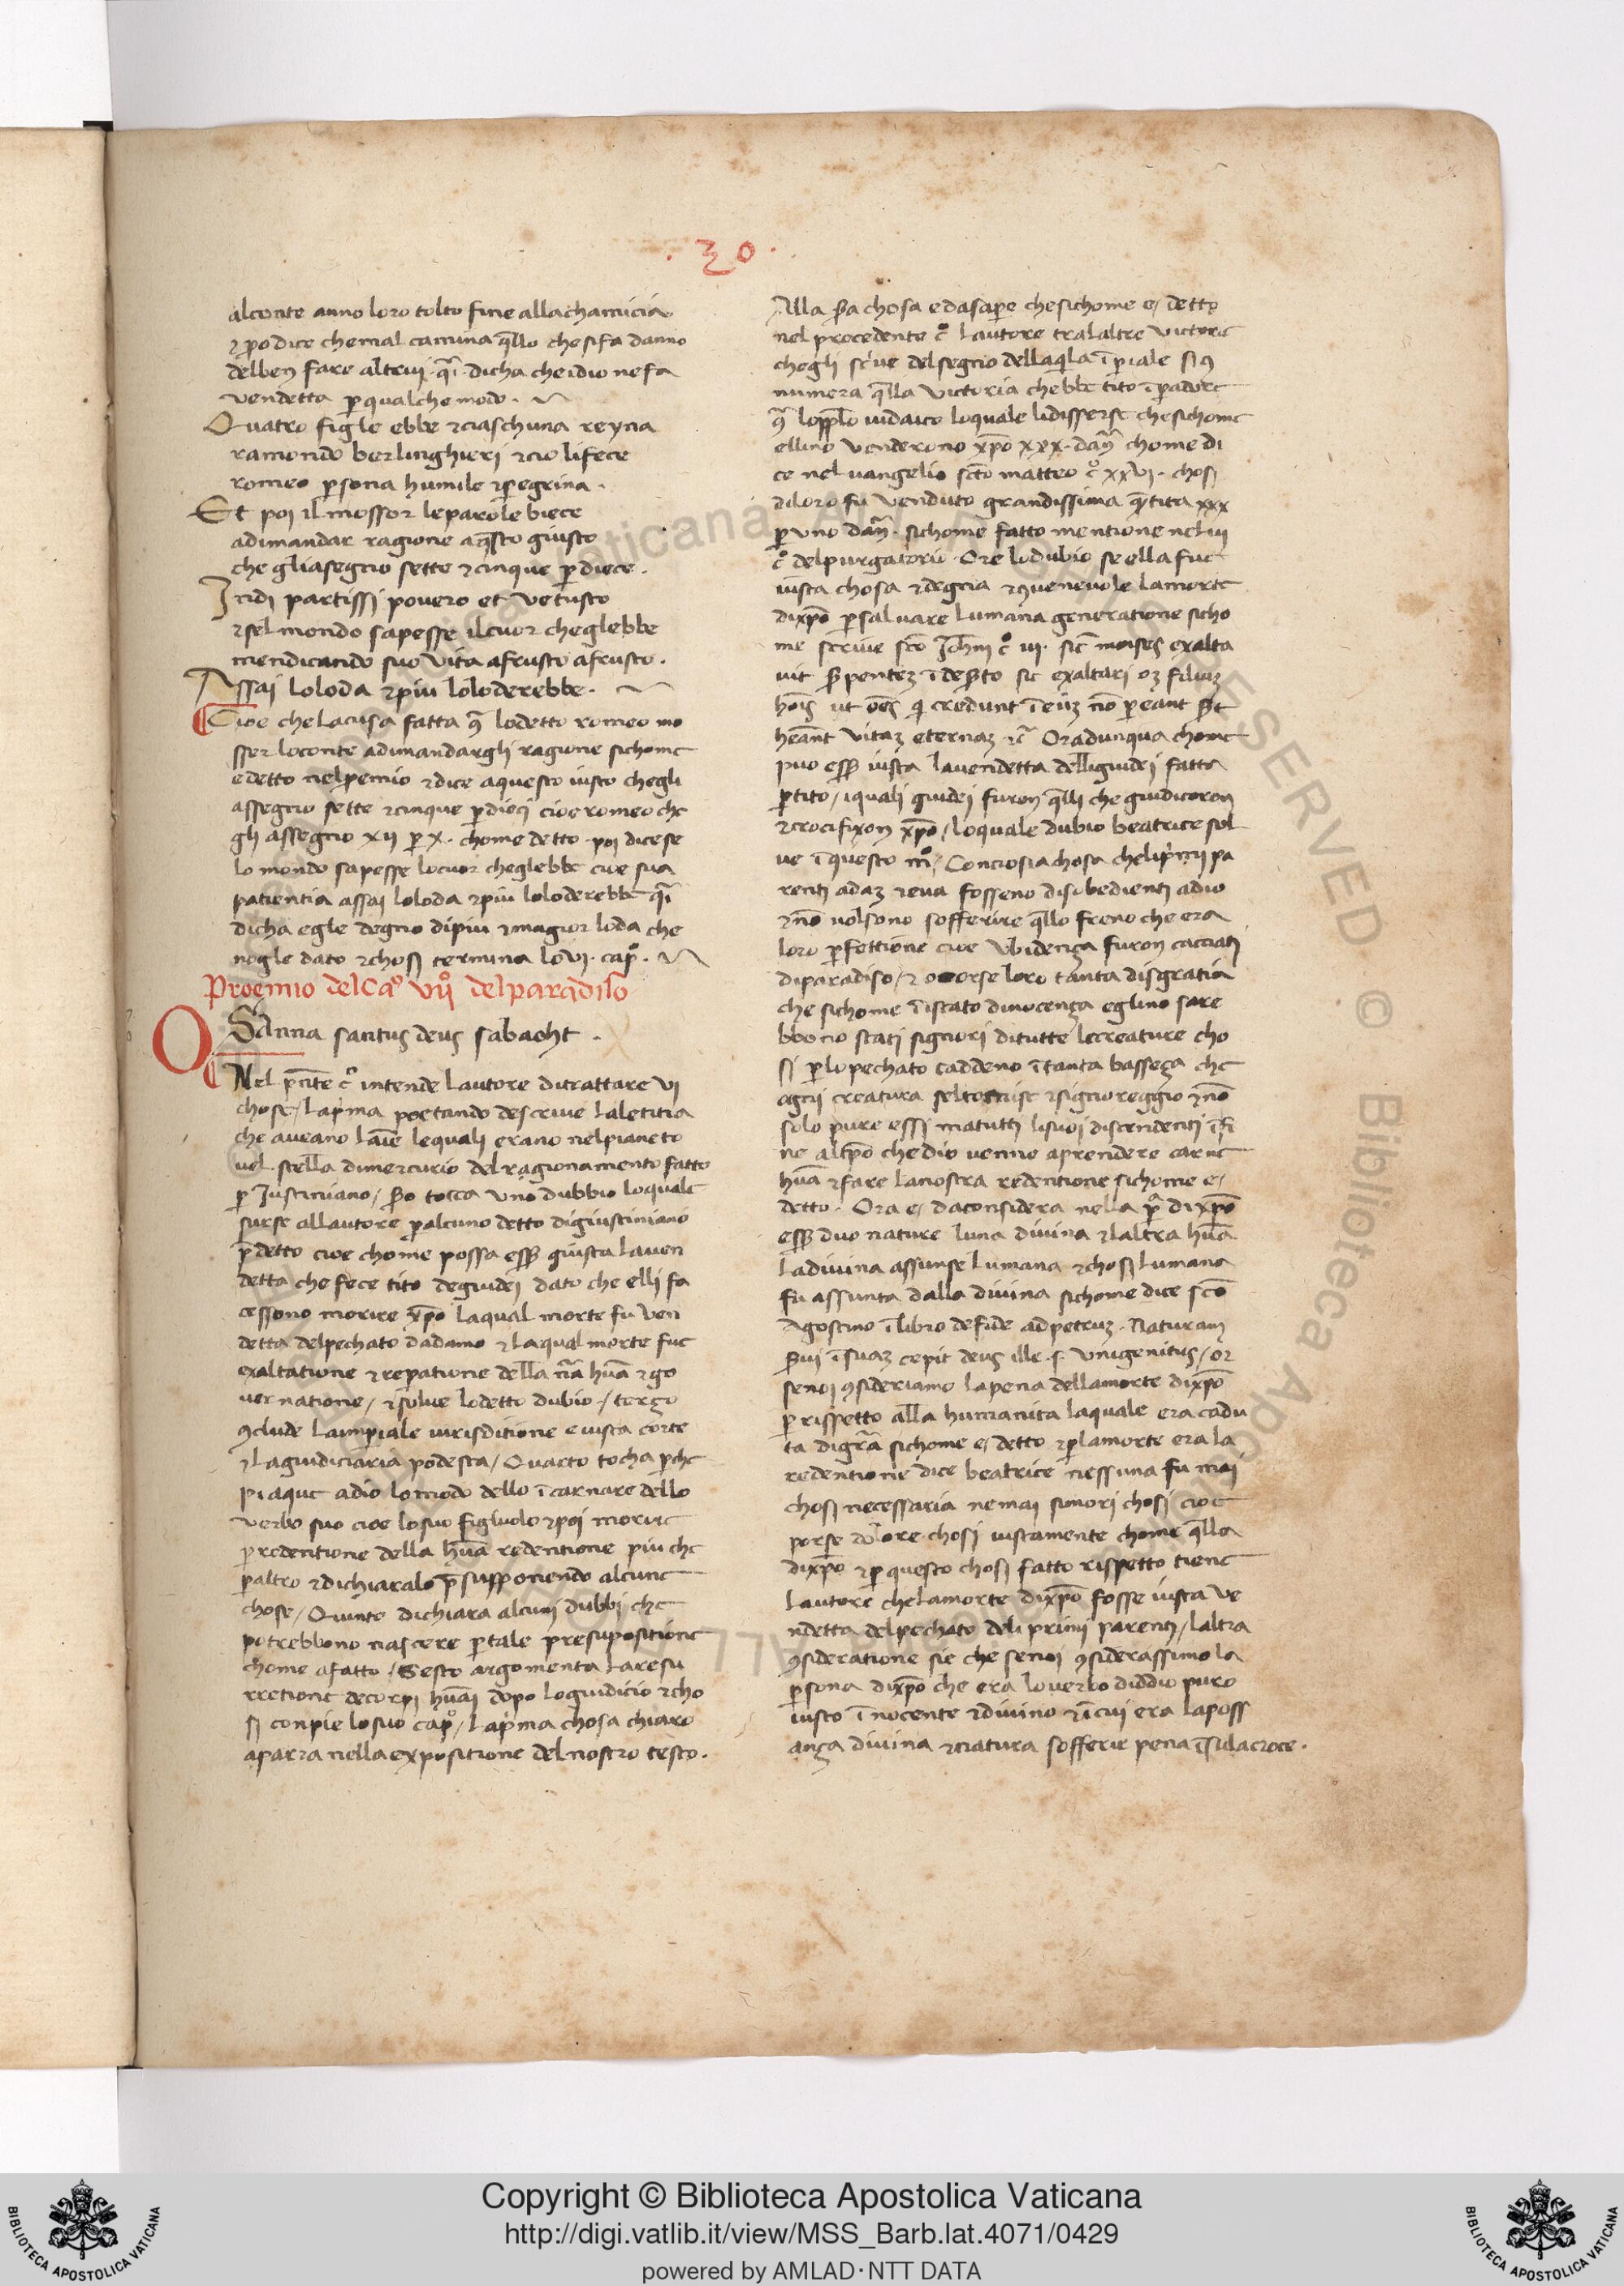 · 30 ·
alconte anno loro tolto fine allachamicia
⁊ ꝑo dice chemal camina q̄llo chesifa danno
delben fare altruj · q̄i · dicha cheidio nefa
vendetta ꝑ qualche modo ·
Quatro figle ebbe ⁊ciaschuna reyna
ramondo berlinghierj ⁊cio lifece
romeo ꝑsona humile ⁊ꝑegrina ·
Et poj il mossor leparole biece
adimandar ragione aq̄sto giusto
che gliasegno sette ⁊cinque ꝑ diece ·
Indj partissj povero et vetusto
⁊sel mondo sapesse ilcuor cheglebbe
mendicando suo vita afrusto afrusto ·
Assaj loloda ⁊piu loloderebbe ·
Cioe che lacusa fatta q̄ lodetto romeo mo
sser loconte adimandarglj ragione sichome
edetto nelpemio ⁊dice aquesto iusto cheglj
assegno sette ⁊cinque ꝑ diecj cioe romeo che
glj assegno xij ꝑ x · chome detto · poj dicese
lo mondo sapesse locuor cheglebbe cioe sua
patientia assaj loloda ⁊piu loloderebbe q̄i
dicha egle degno dipiu ⁊magior loda che
nogle dato ⁊chosj termina lovi · capo ·
Proemio delCao vijo delparadiso
OSanna santus deus sabaoht ·
Nel pn̄te co intende lautore ditrattare vj
chose / lapͥma poetando descrive laletitia
che aveano laīe lequalj erano nelpianeto
vel stella dimercurio delragionamento fatto
ꝑ Justiniano / ꝑo tocca uno dubbio loquale
surse allautore ꝑalcuno detto digiustiniano
p̄detto cioe chome possa esse giusta laven
detta che fece tito degiudej dato che ellj fa
cessono morire xp̄o laqual morte fu ven
detta delpechato dadamo ⁊laqual morte fue
exaltatione ⁊repatione della n̄ra hūa ⁊go
vernatione / ⁊solue lodetto dubio / tergo
ꝯclude laimꝑiale iurisditione e iusta corte
⁊laguidiciaria podesta / Quarto tocha ꝑche
piaque adio lo modo dello īcarnare dello
verbo suo cioe losuo figluolo ⁊poj morire
ꝑredentione della hūa redentione piu che
ꝑaltro ⁊dichiaralo p̄supponendo alcune
chose / Quinto dichiara alcunj dubbj che
potrebbono nascere ꝑtale presupositione
chome afatto / Sesto argomenta laresu
rretione decorpj hūaj dopo loguidicio ⁊cho
sj conpie losuo capo / Lapͥma chosa chiaro
aparra nella expositione del nostro testo ·
Alla pͥa chosa edasaꝑe chesichome e / detto
nel procedente co lautore tralaltre victorie
cheglj scͥve del segno dellaq̄la īꝑiale sj ꝯ
numera q̄lla victoria chebbe tito īꝑadore
q̄ lopp̄lo iudaico loquale lidisserse chesichome
ellino venderono xp̄o xxx · dan̄ · chome di
ce nel vangelio sc̄to matteo co xxvi · chosj
diloro fu venduto grandissima q̄tita xxx
ꝑ uno dan̄ · sichome fatto mentione neliij
co delpurgatorio · Ore lodubio se ella fue
iusta chosa ⁊degna ⁊ꝯuenevole lamorte
dixp̄o ꝑsaluare lumana generatione sicho
me scrive sc̄o Johnj co iij · sic̄ moises exalta
uit ẜpentez īdeẜto sic exaltarj oꝫ filiuꝫ
ho͞is ut oēs qj credunt ī eūꝫ no͞ ꝑeant ẜt
hea͞nt vitaꝫ eternaꝫ ⁊c̄ Oradunqua chome
puo esse iusta lavendetta delligiudej fatta
ꝑtito / iqualj giudej furon q̄llj che giudicoron
⁊crocifixon xp̄o / loquale dubio beatrice sol
ve īquesto mo / Conciosiachosa chelipͥmj pa
rentj adaꝫ ⁊eva fosseno disobedientj adio
⁊no͞ volsono sofferire q̄llo freno che era
loro ꝑfettione cioe ubidença furon cacciatj
diparadiso / ⁊ ocorse loro tanta disgratia
che sichome īistato dinocença eglino sare
bbono statj signorj ditutte lecreature cho
sj ꝑlopechato caddeno ītanta bassega che
agnj creatura seltomise ⁊signoreggio ⁊no͞
solo pure essj matuttj lisuoj discendentj īfi
ne altp̄o chedio venne aprendere carne
hūa ⁊fare lanostra redentione sichome e /
detto · Ora e / daconsidera nella pͣ dixp̄o
esse duo nature luna divina ⁊laltra hūa
Ladivina assunse lumana ⁊chosj lumana
fu assunta dalla divina sichome dice sc̄o
Agostino īlibro defide adpetruꝫ · Naturam
ẜui īsuaꝫ cepit deus ille · s · unigenitus / or
senoj ꝯsideriamo lapena dellamorte dixp̄o
ꝑ rispetto alla humanita laquale era cadu
ta digr̄a sichome e / detto ⁊ꝑlamorte era la
redentione dice beatrice nessuna fu maj
chosj necessaria nemaj simorj chosj cioe
porse dolore chosj iustamente chome q̄lla
dixp̄o ⁊ꝑ questo chosj fatto rispetto tiene
lautore chelamorte dixp̄o fosse iusta ve
ndetta delpechato deli primj parentj / laltra
ꝯsideratione sie che senoj ꝯsiderassimo la
ꝑsona dixp̄o che era loverbo diddio puro
iusto īnocente ⁊divino ⁊īcuj era laposs
ança divina ⁊natura sofferir pena īsulacroce ·
Copyright © Biblioteca Apostolica Vaticana
http://digi.vatlib.it/view/MSS_Barb.lat.4071/0429
powered by AMLAD·NTT DATA
BIBLIOTECA APOSTOLICA VATICANA
BIBLIOTECA APOSTOLICA VATICANA